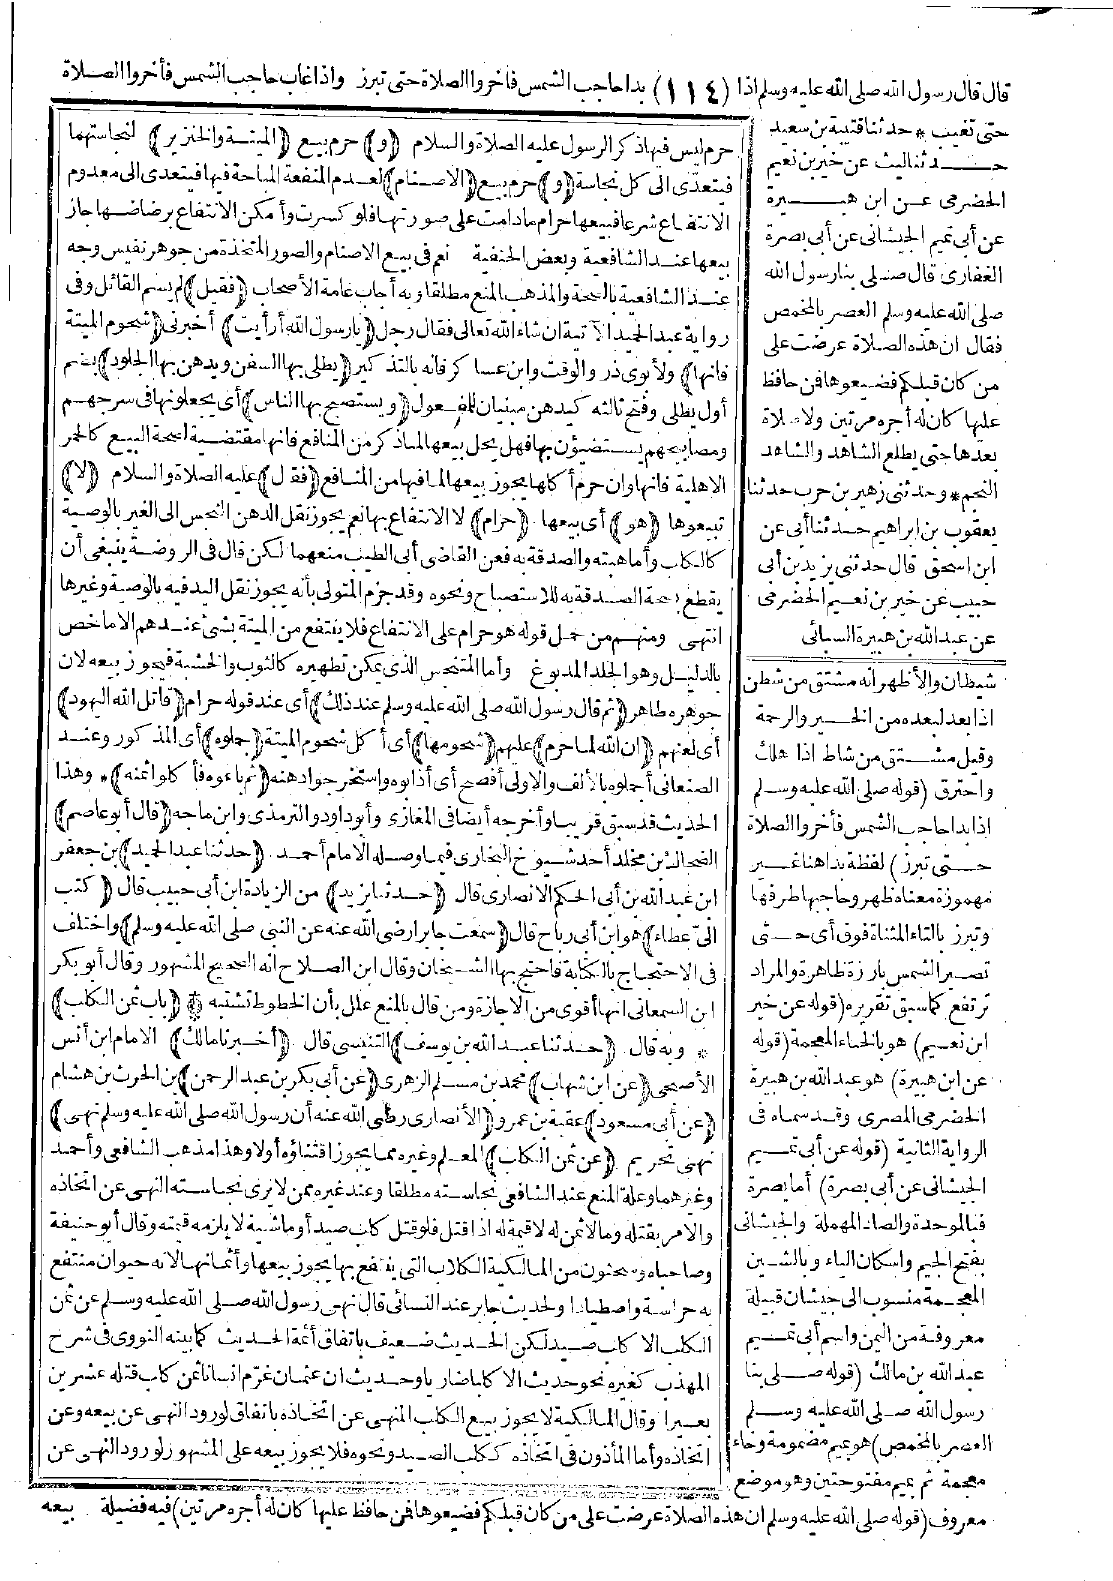 قال قال رسول الله صلى الله عليه وسلم اذا (١١٤) بدا حاجب الشمس فأخروا الصلاة حتى تبرز واذا غاب حاجب الشمس فأخروا الصلاة
حتى تغيب * حدثنا قتيبة بن سعيد
حدثنا ليث عن خير بن نعيم
الحضرمى عن ابن هبيرة
عن أبى تميم الجيشانى عن أبى بصرة
الغفارى قال صلى بنا رسول الله
صلى الله عليه وسلم العصر بالمخمص
فقال ان هذه الصلاة عرضت على
من كان قبلكم فضيعوها فمن حافظ
عليها كان له أجره مرتين ولا صلاة
بعدها حتى يطلع الشاهد والشاهد
النجم * وحدثنى زهير بن حرب حدثنا
يعقوب بن ابراهيم حدثنا أبى عن
ابن اسحق قال حدثنى يزيد بن أبى
حبيب عن خير بن نعيم الحضرمى
عن عبد الله بن هبيرة السبائى
شيطان والأظهر انه مشتق من شطن
اذا بعد لبعده من الخير والرحمة
وقيل مشتق من شاط اذا هلك
واحترق (قوله صلى الله عليه وسلم
اذا بدا حاجب الشمس فأخروا الصلاة
حتى تبرز) لفظة بدا هنا غير
مهموزة معناه ظهر وحاجبها طرفها
وتبرز بالتاء المثناة فوق أى حتى
تصير الشمس بارزة ظاهرة والمراد
ترتفع كما سبق تقريره (قوله عن خير
ابن نعيم) هو بالخاء المعجمة (قوله
عن ابن هبيرة) هو عبد الله بن هبيرة
الحضرمى المصرى وقد سماه فى
الرواية الثانية (قوله عن أبى تميم
الجيشانى عن أبى بصرة) أما بصرة
فبالموحدة والصاد المهملة والجيشانى
بفتح الجيم واسكان الياء وبالشين
المعجمة منسوب الى جيشان قبيلة
معروفة من اليمن واسم أبى تميم
عبد الله بن مالك (قوله صلى بنا
رسول الله صلى الله عليه وسلم
العصر بالمخمص) هو بميم مضمومة وخاء
معجمة ثم بميم مفتوحتين وهو موضع
حرم ليس فيها ذكر الرسول عليه الصلاة والسلام (و) حرم بيع (الميتة والخنزير) لنجاستهما
فيتعدى الى كل نجاسة (و) حرم بيع (الاصنام) لعدم المنفعة المباحة فيها فيتعدى الى معدوم
الانتفاع شرعا فبيعها حرام ما دامت على صورتها فلو كسرت وأمكن الانتفاع برضاضها جاز
بيعها عند الشافعية وبعض الحنفية نعم فى بيع الاصنام والصور المتخذة من جوهر نفيس وجه
عند الشافعية بالصحة والمذهب المنع مطلقا وبه أجاب عامة الأصحاب (فقيل) لم يسم القائل وفى
رواية عبد الحميد الآتية ان شاء الله تعالى فقال رجل (يا رسول الله أرأيت) أخبرنى (شحوم الميتة
فانها) ولأبوى ذر والوقت وابن عساكر فانه بالتذكير (يطلى بها السفن ويدهن بها الجلود) بضم
أول يطلى وفتح ثالثه كيدهن مبنيان للمفعول (ويستصبح بها الناس) أى يجعلونها فى سرجهم
ومصابيحهم يستضيؤن بها فهل يحل بيعها لما ذكر من المنافع فانها مقتضية لصحة البيع كالحمر
الاهلية فانها وان حرم أكلها يجوز بيعها لما فيها من المنافع (فقال) عليه الصلاة والسلام (لا)
تبيعوها (هو) أى بيعها (حرام) لا الانتفاع بها نعم يجوز نقل الدهن النجس الى الغير بالوصية
كالكلب وأما هبته والصدقة به فعن القاضى أبى الطيب منعهما لكن قال فى الروضة ينبغى أن
يقطع بصحة الصدقة به للاستصباح ونحوه وقد جزم المتولى بأنه يجوز نقل اليد فيه بالوصية وغيرها
انتهى ومنهم من حمل قوله هو حرام على الانتفاع فلا ينتفع من الميتة بشئ عندهم الا ما خص
بالدليل وهو الجلد المدبوغ وأما المتنجس الذى يمكن تطهيره كالثوب والخشبة فيجوز بيعه لان
جوهره طاهر (ثم قال رسول الله صلى الله عليه وسلم عند ذلك) أى عند قوله حرام (قاتل الله اليهود)
أى لعنهم (ان الله لما حرم) عليهم (شحومها) أى أكل شحوم الميتة (جملوه) أى المذكور وعند
الصغانى أجملوه بالألف والاولى أفصح أى أذابوه واستخرجوا دهنه (ثم باعوه فأكلوا ثمنه) * وهذا
الحديث قد سبق قريبا وأخرجه أيضا فى المغازى وأبو داود والترمذى وابن ماجه (قال أبو عاصم)
الضحاك بن مخلد أحد شيوخ البخارى فيما وصله الامام أحمد (حدثنا عبد الحميد) بن جعفر
ابن عبد الله بن أبى الحكم الانصارى قال (حدثنا يزيد) من الزيادة ابن أبى حبيب قال (كتب
الىّ عطاء) هو ابن أبى رباح قال (سمعت جابرا رضى الله عنه عن النبى صلى الله عليه وسلم) واختلف
فى الاحتجاج بالكتابة فاحتج بها الشيخان وقال ابن الصلاح انه الصحيح المشهور وقال أبو بكر
ابن السمعانى انها أقوى من الاجازة ومن قال بالمنع علل بأن الخطوط تشتبه * (باب ثمن الكلب)
* وبه قال (حدثنا عبد الله بن يوسف) التنيسى قال (أخبرنا مالك) الامام ابن أنس
الأصبحى (عن ابن شهاب) محمد بن مسلم الزهرى (عن أبى بكر بن عبد الرحمن) بن الحرث بن هشام
(عن أبى مسعود) عقبة بن عمرو (الأنصارى رضى الله عنه أن رسول الله صلى الله عليه وسلم نهى)
نهى تحريم (عن ثمن الكلب) المعلم وغيره مما يجوز اقتناؤه أو لا وهذا مذهب الشافعى وأحمد
وغيرهما وعلة المنع عند الشافعى نجاسته مطلقا وعند غيره ممن لا يرى نجاسته النهى عن اتخاذه
والامر بقتله وما لا ثمن له لا قيمة له اذا قتل فلو قتل كلب صيد أو ماشية لا يلزمه قيمته وقال أبو حنيفة
وصاحباه وسحنون من المالكية الكلاب التى ينتفع بها يجوز بيعها وأثمانها لانه حيوان منتفع
به حراسة واصطيادا ولحديث جابر عند النسائى قال نهى رسول الله صلى الله عليه وسلم عن ثمن
الكلب الا كلب صيد لكن الحديث ضعيف باتفاق أئمة الحديث كما بينه النووى فى شرح
المهذب كغيره نحو حديث الا كلبا ضاريا وحديث ان عثمان غرم انسانا ثمن كلب قتله عشرين
بعيرا وقال المالكية لا يجوز بيع الكلب المنهى عن اتخاذه باتفاق لورود النهى عن بيعه وعن
اتخاذه وأما المأذون فى اتخاذه ككلب الصيد ونحوه فلا يجوز بيعه على المشهور لورود النهى عن
معروف (قوله صلى الله عليه وسلم ان هذه الصلاة عرضت على من كان قبلكم فضيعوها فمن حافظ عليها كان له أجره مرتين) فيه فضيلة بيعه